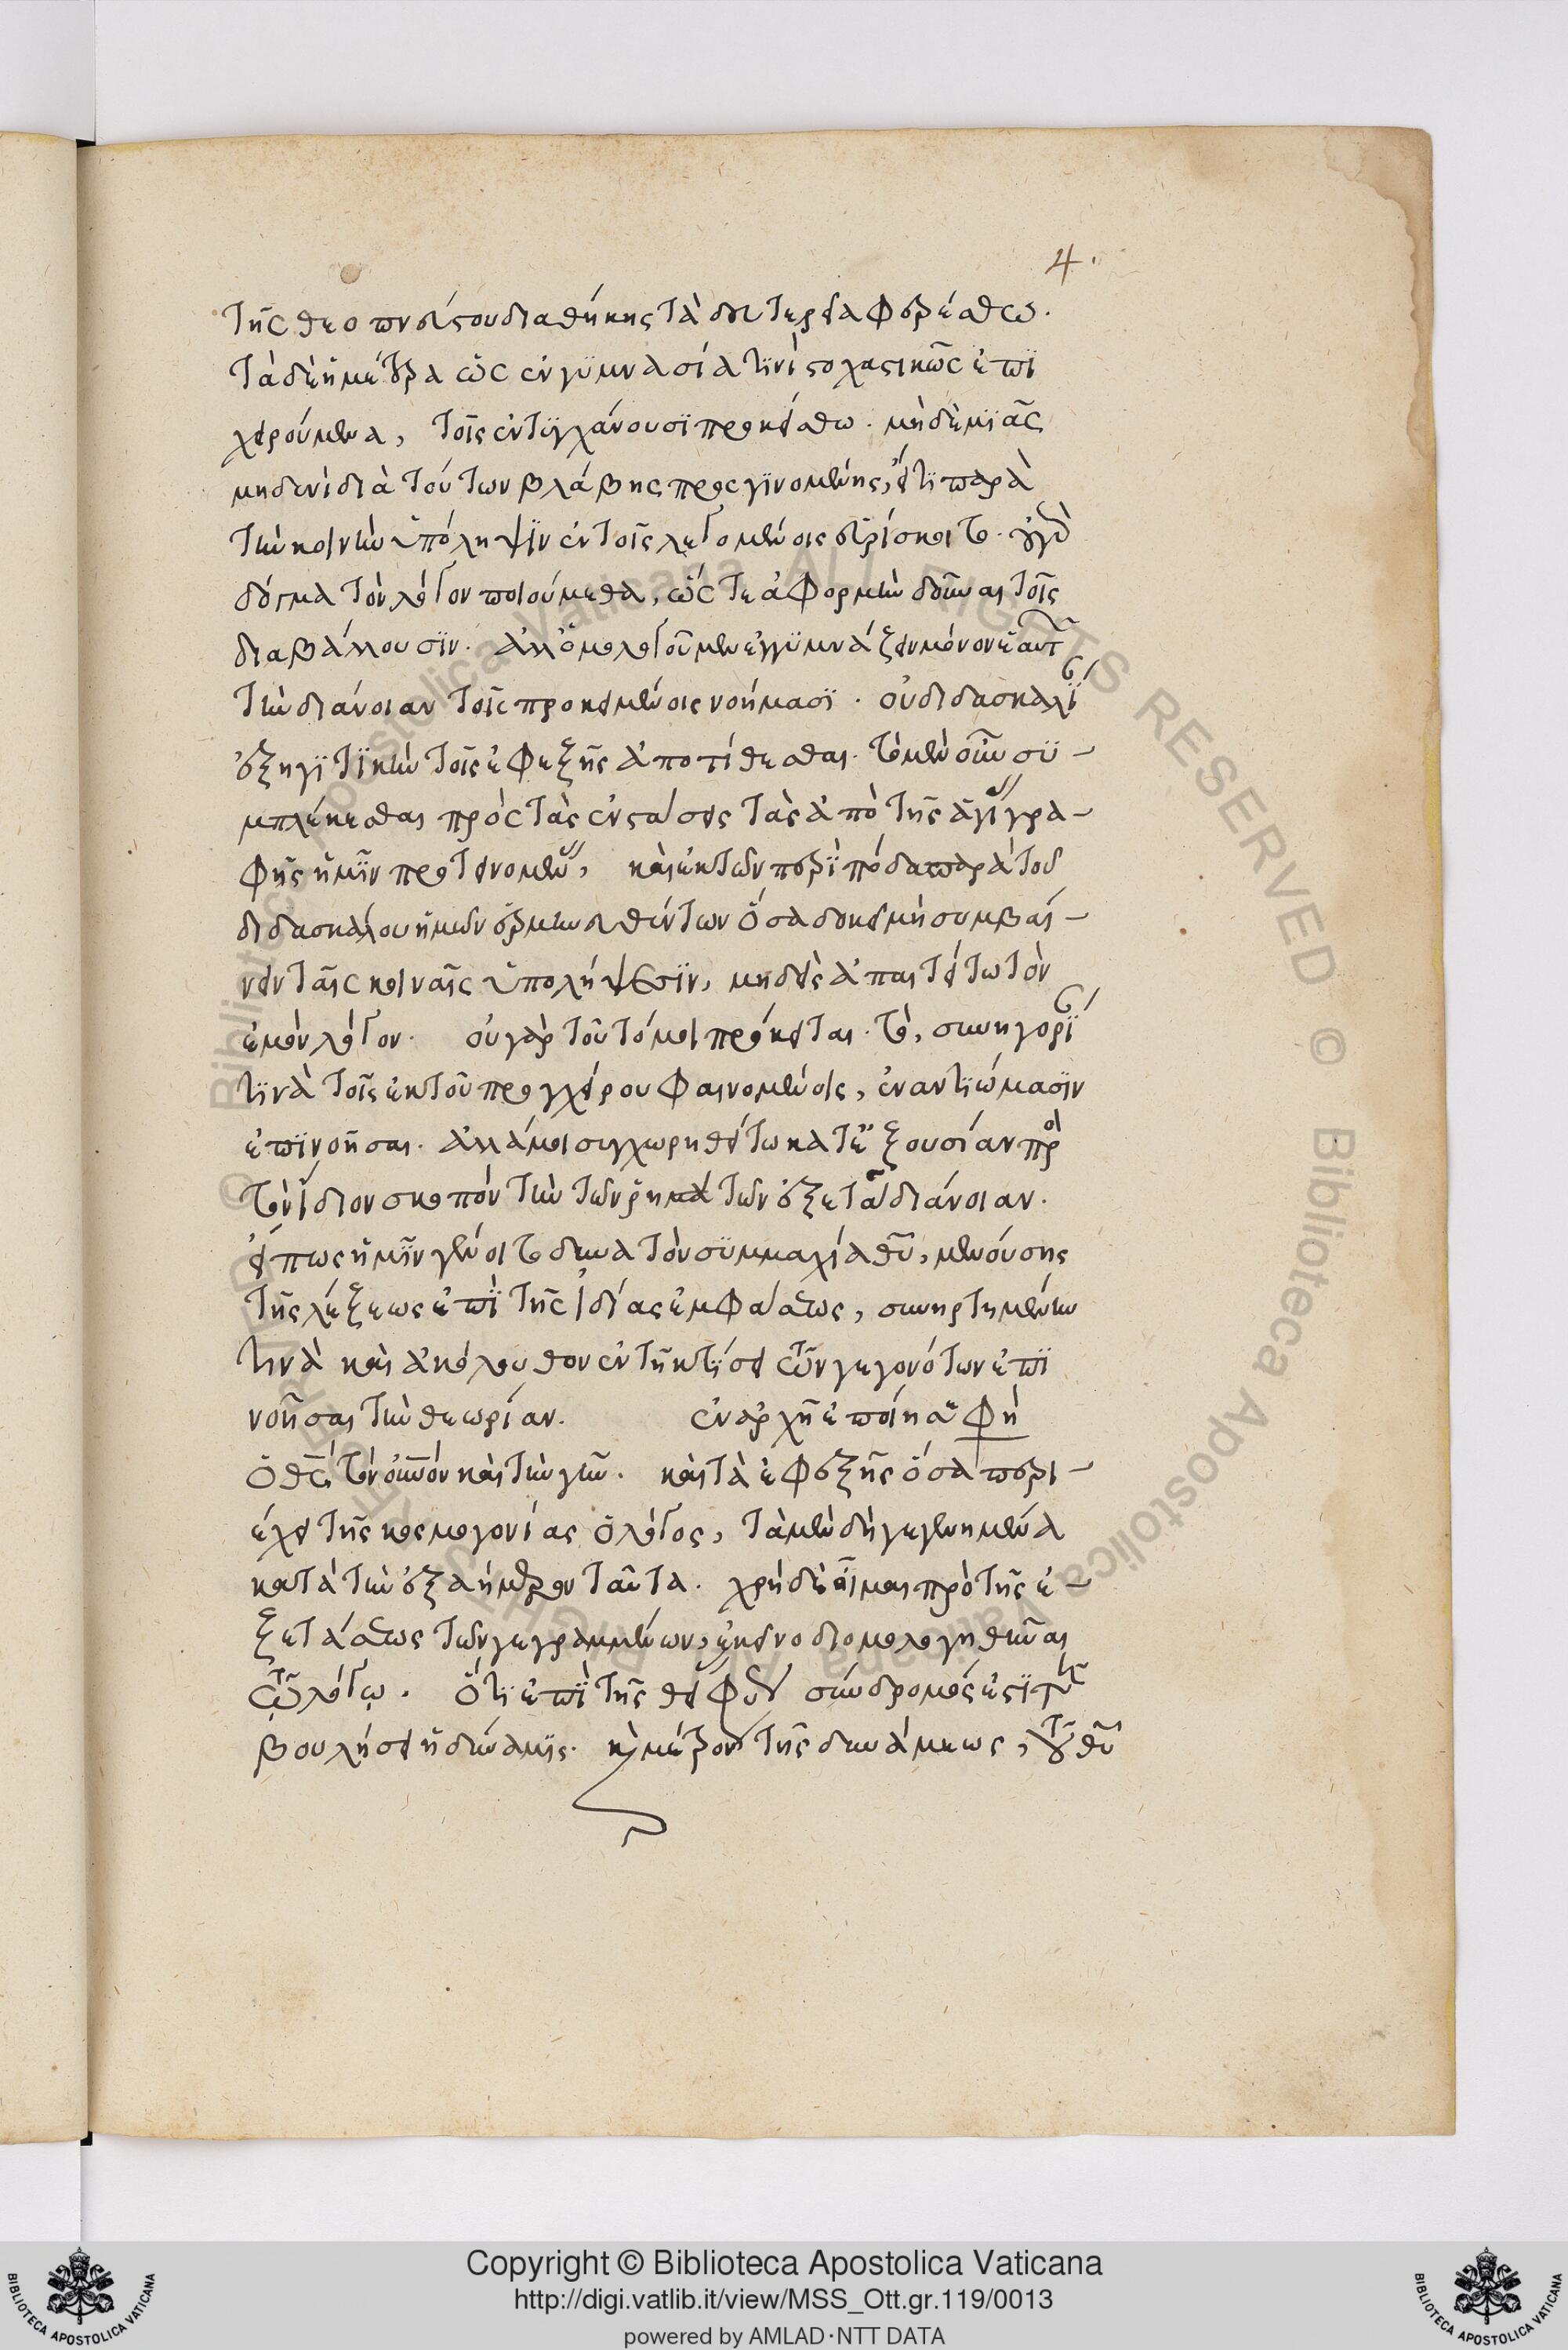 4.
τῆς θεοπνεύστου διαθήκης τὰ δευτερεῖα φερέσθω.
τὰ δὲ ἡμέτερα ὡς ἐν γυμνασία τινὶ στοχαστικῶς ἐπι
χειρούμενα, τοῖς ἐντυγχάνουσι προκείσθω. μηδεμιᾶς
μηδενὶ διὰ τούτων βλάβης προςγινομένης, εἴ τι παρὰ
τὴν κοινὴν ὑπόληψιν ἐν τοῖς λεγομένοις εὑρίσκοιτο. οὐ γὰρ
δόγμα τὸν λόγον ποιούμεθα, ὥς τε ἀφορμὴν δοῦναι τοῖς
διαβάλλουσιν. ἀλλ' ὁμολογοῦμεν ἐγγυμνάζειν μόνον ἑαυτῶν
τὴν διάνοιαν τοῖς προκειμένοις νοήμασι. οὐ διδασκαλίαν
ἐξηγητικὴν τοῖς ἐφεξῆς ἀποτίθεσθαι. τὸ μὲν οὖν συ-
μπλέκεσθαι πρὸς τὰς ἐνστάσεις τὰς ἀπὸ τῆς ἁγίας γρα-
φῆς ἡμῖν προτεινομένας, καὶ ἐκ τῶν περὶ πόδα παρὰ τοῦ
διδασκάλου ἡμῶν ἑρμηνευθέντων ὅσα δοκεῖ μὴ συμβαί-
νειν ταῖς κοιναῖς ὑπολήψεσιν, μηδεὶς ἀπαιτείτω τὸν
ἐμὸν λόγον. οὐ γὰρ τοῦτό μοι πρόκειται. τὸ, συνηγορίαν
τινὰ τοῖς ἐκ τοῦ προχείρου φαινομένοις, ἐναντιώμασιν
ἐπινοῆσαι. ἀλλά μοι συγχωρηθείτω κατ' ἐξουσίαν πρὸς
τὸν ἴδιον σκοπόν τὴν τῶν ῥημάτων ἐξετάσαι διάνοιαν.
εἴ πως ἡμῖν γένοιτο δυνατὸν συμμαχία θῦ, μενούσης
τῆς λέξεως ἐπὶ τῆς ἰδίας ἐμφάσεως, συνηρτημένην
τινὰ καὶ ἀκόλουθον ἐν τῇ κτίσει τῶν γεγονότων ἐπι
νοῆσαι τὴν θεωρίαν. ἐν ἀρχῇ ἐποίησε φὴ
ὁ θς τὸν οὐνόν καὶ τὴν γῆν. καὶ τὰ ἐφεξῆς ὅσα περι-
έχει τῆς κοσμογονίας ὁ λόγος, τὰ μὲν δὴ γεγενημένα
κατὰ τὴν ἑξαήμερον ταῦτα. χρὴ δὲ οἶμαι πρὸ τῆς ἐ-
ξετάσεως τῶν γεγραμμένων, ἐκεῖνο διομολογηθῆναι
τῷ λόγῳ. ὅτι ἐπὶ τῆς θείας φύσεως σύνδρομός ἐστι τῇ
βουλήσει ἡ δύναμις. καὶ μέτρον τῆς δυνάμεως, τοῦ θῦ
Copyright © Biblioteca Apostolica Vaticana
http://digi.vatlib.it/view/MSS_Ott.gr.119/0013
powered by AMLAD·NTT DATA